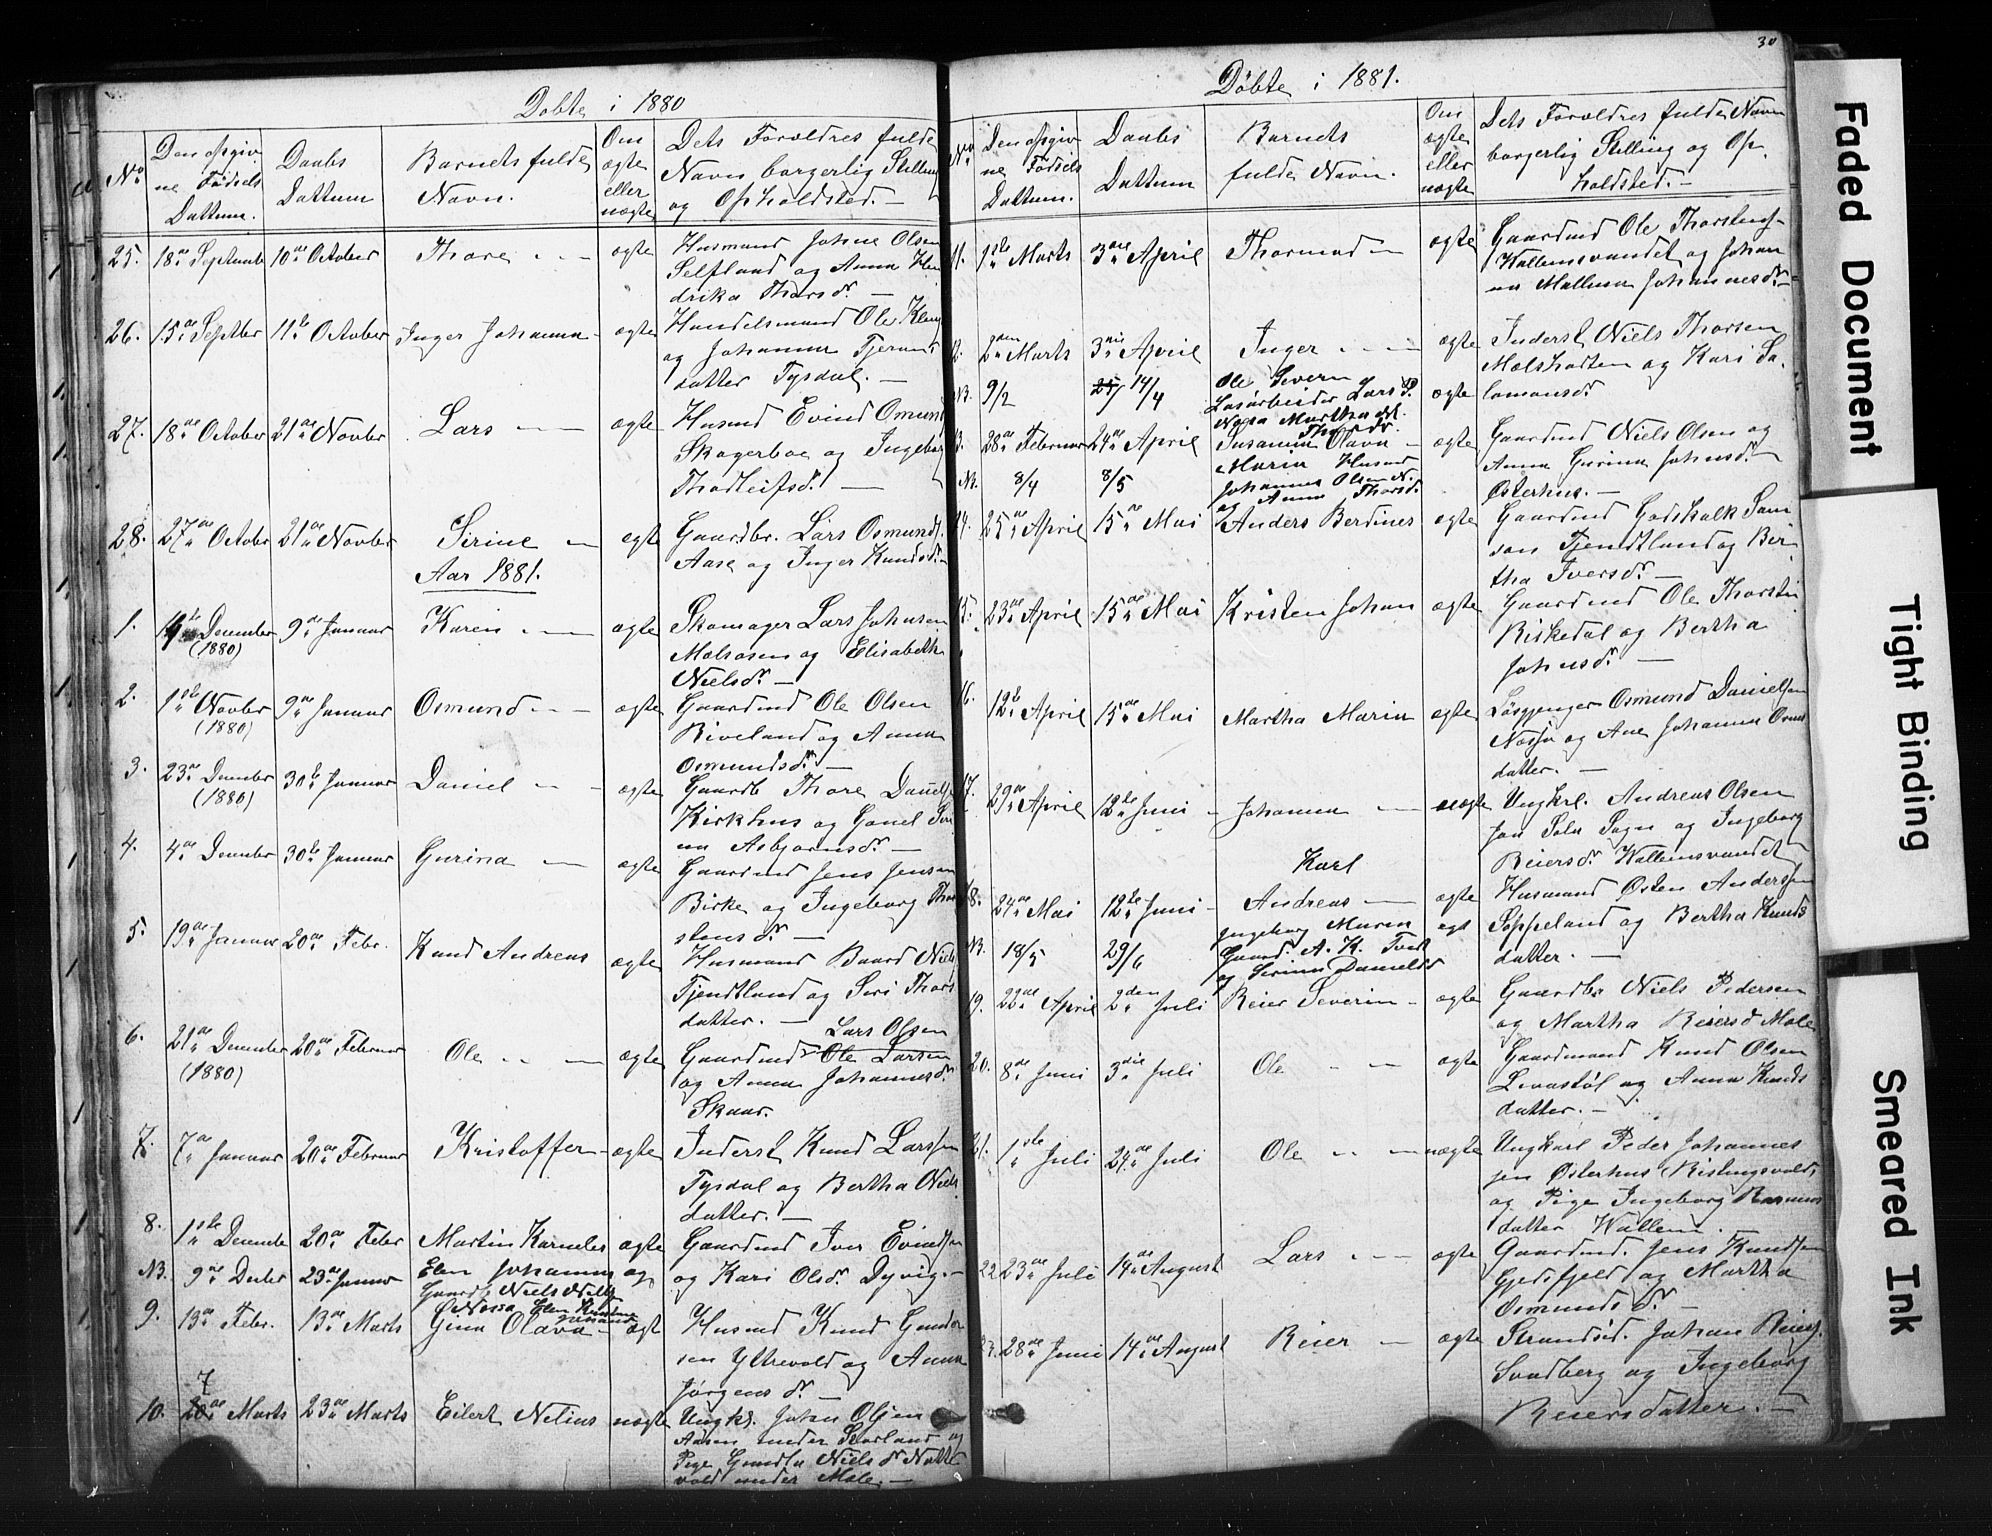 Døbte i 1880
No
Den opgivne Fødsels Dattum.
Daabs Dattum
Barnets fulde Navn.
Om ægte eller uægte
Dets Forældres fulde Navn borgerlig Stilling og Opholdsted. —
25. 18de Septembr 10de October Thore — ægte Husmand Johne Olsen
Selfland og Anna Hen
drika Thorsdr. —
26. 15de Septbr 11te October Inger Johanna — ægte Handelsmand Ole
og Johanna
datter Tysdal. —
27. 18de October 21de Novbr Lars — ægte Husmd Evind Omund
Skogerboe og Ingeborg
Thodleifsdr. —
28. 27de Octobr 21de Novbr Sirine — ægte Gaardbr. Lars Osmunds.
Aase og Inger Knudsdr. —
Aar 1881.
1. December 9de Januar Karen — ægte Skomager Lars Johnsen
(1880) og Elisabeth
Nielsdr. —
2. 1ste Novbr 9de Januar Osmund — ægte Gaardmd Ole Olsen
(1880) Riveland og Anna
Osmundsdr. —
3. 23de Decmber 30te Januar Daniel — ægte Gaardb Thore Danielse
(1880) Kirkhus og Gonel Seri
na Asbjornsdr. —
4. 4de December 30te Januar Gurina — ægte Gaardmd Jens Jensen
Birke og Ingeborg Thor
stensdr. —
5. 19de Januar 20de Febr. Knud Andreas ægte Husmand Baard Niels
Tjendtland og Seri Thors
datter. —
6. 21de December 20de Februar Ole — ægte Gaardmd Ole Larsen
Lars Olsen
(1880) og Anna Johannesdr.
Skaar.
7. 7de Januar 20de Februar Kristoffer — ægte Inderst Knud Larssen
Tysdal og Bertha Niels
datter. —
8. 1ste Decembe 20de Febr Martin Karneles ægte Gaardmd Iver Evindsen
og Kari Olsdr. Dyvig. —
NB. 9de Decbr 23de Januar Elen Johanna
Gaardb Niels Niels
Nossa Elen
9. 13de Febr. 13de Marts Gina Olava — ægt Husmd Knud Gunder
sen Ytrevold og Anna
Jørgensdr. —
7
10. 20de Marts 23de Marts Eilert Nelius uægte Ungkl. Johan Olsen
Aasen under og
Pige Nielsdr
vold under Mæle. —
30
Døbte i 1881.
No
Den opgivne Fødsels Dattum.
Daabs Dattum
Barnets fulde Navn.
Om ægte eller uægte
Dets Forældres fulde Navn borgerlig Stilling og Opholdsted. —
11. 1ste Marts 3die April Thormod — ægte Gaardmd Ole Thorstens
Wallemsvandet og Johan
na Mallena Johannesdr. —
12. 2den Marts 3die April Inger — ægte Inderst Niels Thorsen
og Kari Sa
lomonsdr.
NB. 9/2 14/4 Ole Severin
Løsarbeider Lars P.
Nossa Martha
Thorsdr. ægte
13. 28de Februar 24de April Susanna Olava — ægte Gaardmd Niels Olsen og
Anna Gurina Johnsdr.
Østerhus. —
NB. 8/4 8/5 Maria Husmd
Johannes Olsen N.
og Anna Thorsdr.
14. 25de April 15de Mai Anders Berdines ægte Gaardmd Godskalk Sam
son Tjendtland og Ber
tha Iversdr. —
15. 23de April 15de Mai Kristen Johan ægte Gaardmd Ole Thorstens
Riskedal og Bertha
Johnsdr. —
16. 12te April 15de Mai Martha Maria ægte Løsgjenger Osmund Danielsen
Nossa og Ane Johanna Osmd
datter. —
17. 29de April 12te Juni — Johanna — uægte Ungkrl. Andreas Olsen
og Ingeborg
Reiersdr. Wallemsvandet
18. 24de Mai 12te Juni — Karl
Andreas — ægte Husmand Østen Andersen
Soppeland og Bertha Knuds
datter. —
NB. 18/5 29/6 Ingeborg Maren ægt
Gaard. A. K. Tveit
og Serina Danielsd
19. 22de April 2den Juli Reier Severin — ægte Gaardbr Niels Pedersen
og Martha Reiersd Mæle
20. 8de Juni 3die Juli Ole — ægte Gaardmand Knud Olsen
og Anna Knuds
datter. —
21. 1ste Juli 24de Juli Ole — uægte Ungkarl Peder Johannes
sen Østerhus
og Pige Ingeborg Rasmus
datter Wallem.
22. 23de Juli 14de August Lars — ægte Gaardmd. Jens Knudsen
og Martha
Osmundsdr. —
23. 28de Juni 14de August Reier — ægte Strandsid. Johan Reiers.
Sandberg og Ingeborg
Reiersdatter. —
Faded Document
Tight Binding
Smeared Ink